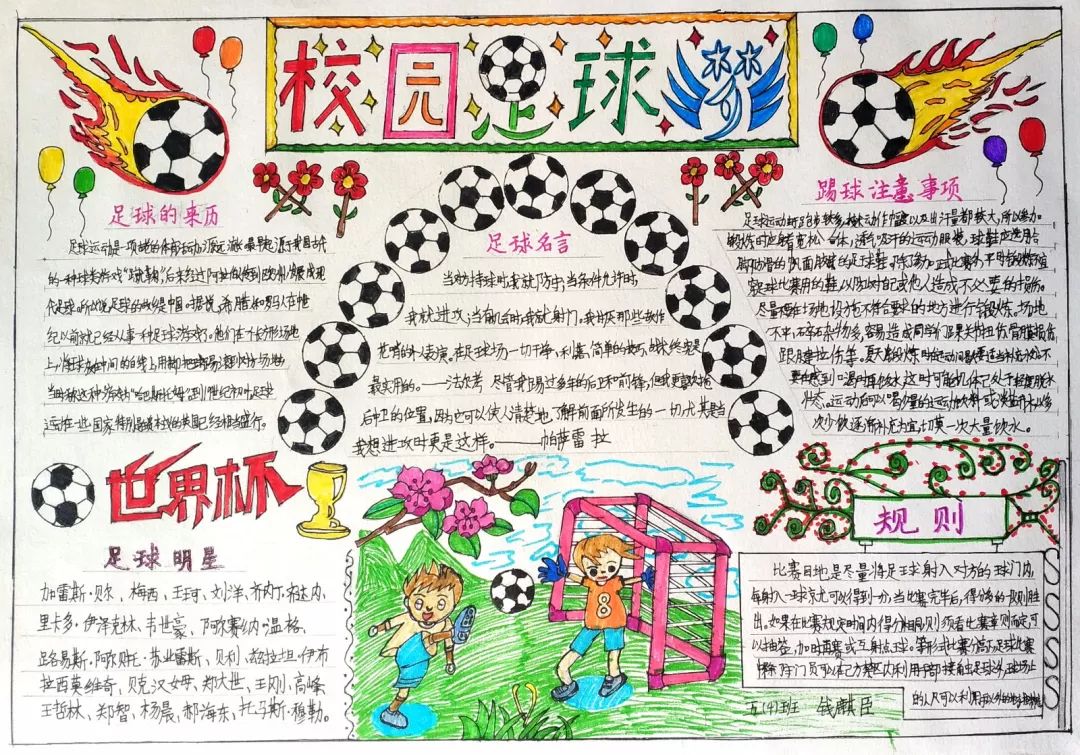 校园足球梦
足球的来历
足球运动是一项古老的体育运动,源远流长。最早起源于我国古代
的一种球类游戏“蹴鞠”,后来经过阿拉伯人传到欧洲,发展成现
代足球。所以说足球的故乡是中国。据说,希腊人和罗马人在中世
纪以前就已经从事一种足球游戏了。他们在一个长方形场地
上,将球放在中间的白线上,用脚把球踢滚到对方场地
当时称这种游戏为“哈巴斯托姆”。到19世纪初叶,足球
运动在一些国家特别是
已经相当盛行。
足球名言
当对方持球时,我就防守;当条件允许时,
我就进攻;当有机会时,我就射门。我讨厌那些故作
花哨的人表演。在足球场一切干净、利索、简单的技巧、战术终究是
最实用的。——法尔考 尽管我踢过多年的右卫和前锋,但我更喜欢
后卫的位置,因为它可以使人清楚地了解前面所发生的一切,尤其当
我想进攻时更是这样。——帕萨雷拉
踢球注意事项
足球运动
动作幅度以及出汗量都较大,所以参加
锻炼时应穿着宽松、合体、透气、吸汗的运动服装,球鞋应选用合
脚、防滑的
足球鞋。
尽量选择场地设施
不符要求的地方进行锻炼。场地
不平,碎石杂物多,容易造成同学们
扭伤、骨膜损伤
跟腱拉伤等。
状态。运动后可以喝少量的运动饮料或
少饮逐渐补充为宜,切莫一次大量饮水。
世界杯
足球明星
加雷斯·贝尔、梅西、王珂、刘洋、齐内丁·齐达内、
里卡多·伊泽克林、韦世豪、阿尔赛纳·温格、
路易斯·阿尔贝托·苏亚雷斯、贝利、兹拉坦·伊布
拉西莫维奇、贝克汉姆、郑大世、王刚、高峰
王哲林、郑智、杨晨、郝海东、托马斯·穆勒。
8
规则
比赛目地是尽量将足球射入对方的球门内,
每射入一球就可以得到一分,当比赛完毕后,得分多的一队则胜
出。如果在比赛规定时间内得分相同,则须看比赛章则而定,可
以抽签、加时再赛或互射点球
等形式比赛分高下。足球比赛
中除守门员可以在己方禁区内利用手部接触足球外,球场上
的人只可以利用手以外的
五(4)班 钱麒臣